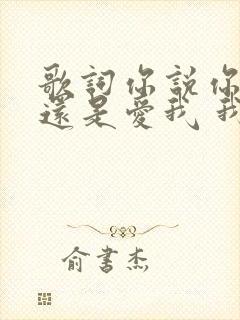 歌詞你說你
還是愛我 我
俞書杰